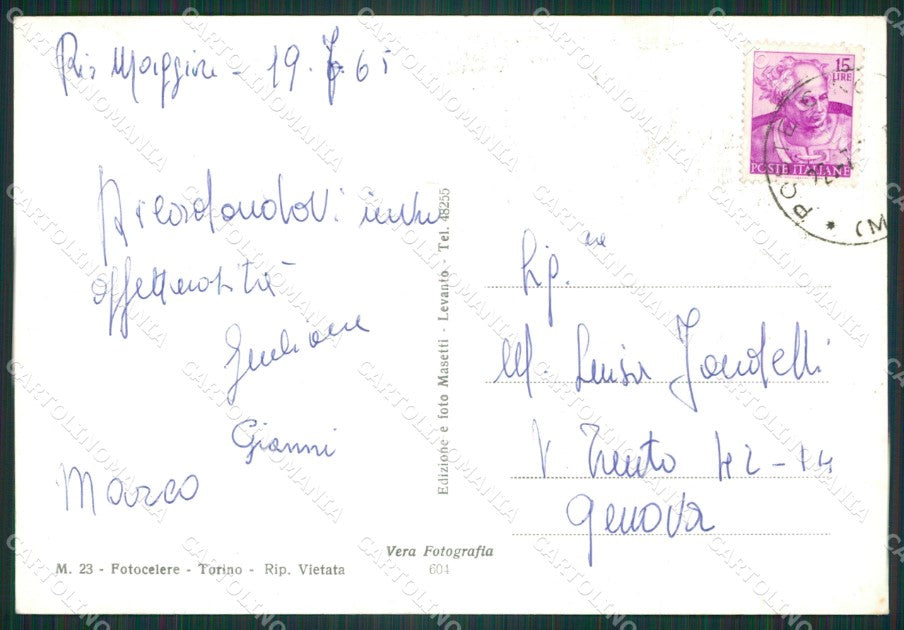 Rio Maggiore - 19.7.65
15
LIRE
POSTE ITALIANE
Ricordandovi
affettuosità
Giuliana
Gianni
Marco
Edizione e foto Masetti - Levanto - Tel. 48255
Sig.na
M. Luisa Zandelli
V. Trento 42-14
Genova
Vera Fotografia
604
M. 23 - Fotocelere - Torino - Rip. Vietata
CARTOLINOMANIA